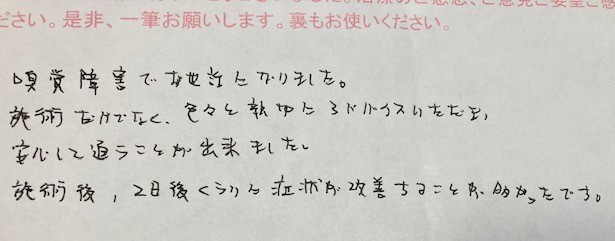 ださい。是非、一筆お願いします。裏もお使いください。
嗅覚障害でお世話になりました。
施術だけでなく、色々と親切にアドバイスいただき、
安心して通うことが出来ました。
施術後、2日後くらいに症状が改善することが多かったです。